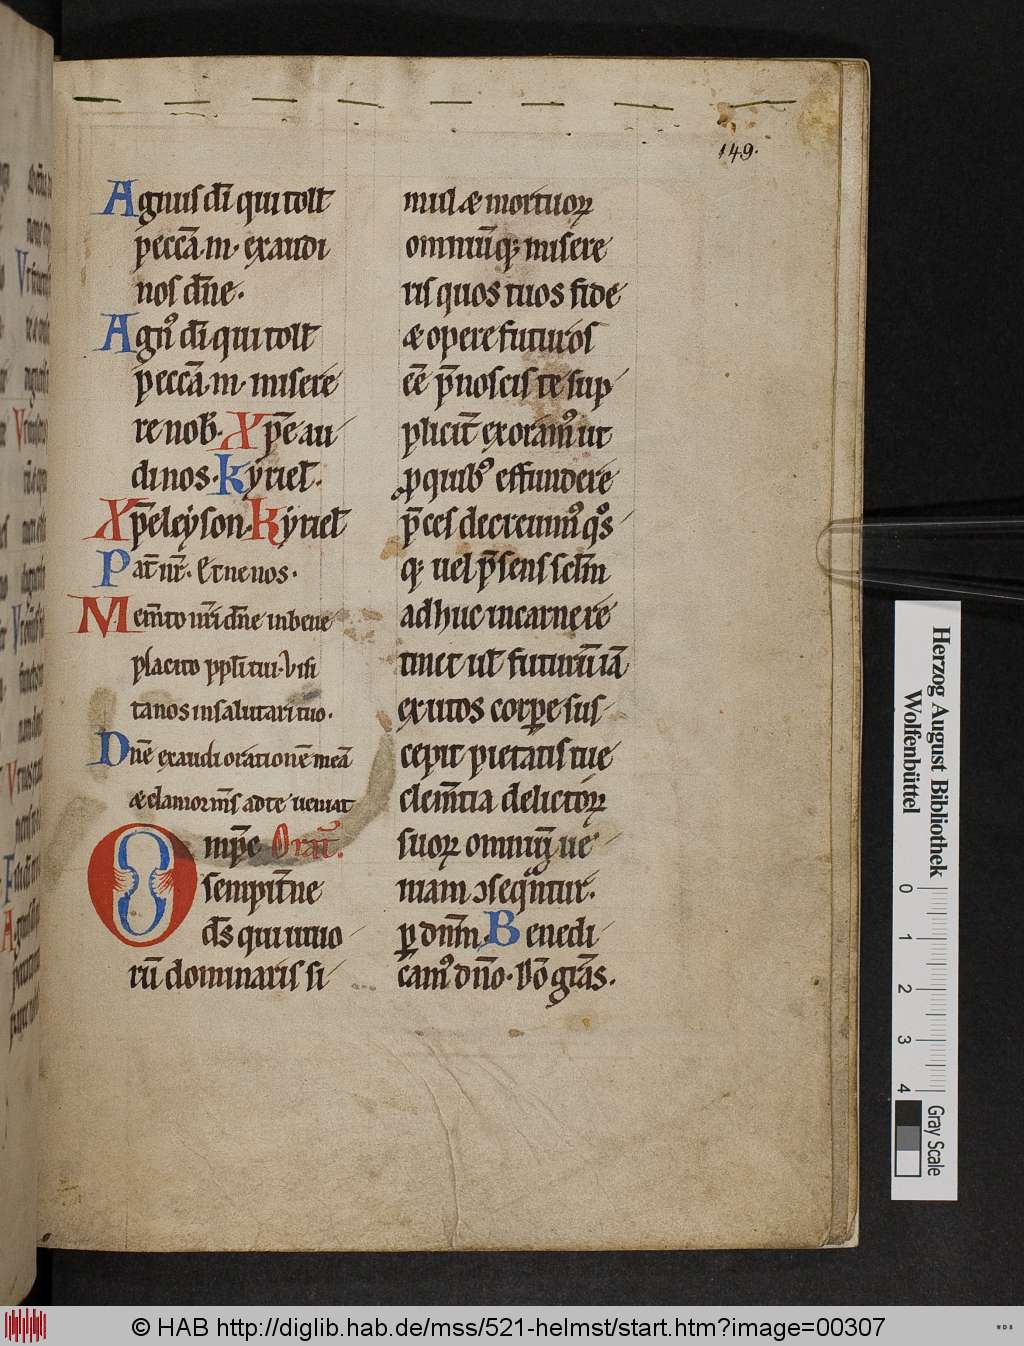 149.
Agnus dı̄ qui toll̄
peccā. m. exaudi
nos dn̄e.
Agnꝰ dı̄ qui toll̄
peccā. m. misere
re nob̄. Xp̄e au
di nos. kyriel̄.
Xp̄eleyson. kyriel̄
Pat̄ nr̄. Et ne nos.
Mem̄to nr̄i dn̄e in bene
placito ppl̄i tui. Visi
ta nos in salutari tuo.
Dn̄e exaudi orationē meā
æ clamor m̄s ad te ueniat
Omp̄c Orat̄.
sempit̄ne
ds̄ qui uiuo
rū dominaris si
mul æ mortuoꝝ
omniūqꝫ misere
ris quos tuos fide
æ opere futuros
eē p̄noscis te sup
plicit̄ exoramꝰ ut
ꝓ quibꝰ effundere
p̄ces decreuimꝰ qͦs
qꝫ uel p̄sens sc̄lm
adhuc in carne re
tinet ul̄ futurū iā
exutos corꝑe sus
cepit pietatis tue
clem̄tia delictoꝝ
suoꝝ omniū ue
niam ꝯseqͣntur.
ꝑ dn̄m. Benedi
camꝰ dn̄o. Dō gr̄as.
Herzog August Bibliothek
Wolfenbüttel
0 1 2 3 4
Gray Scale
© HAB http://diglib.hab.de/mss/521-helmst/start.htm?image=00307